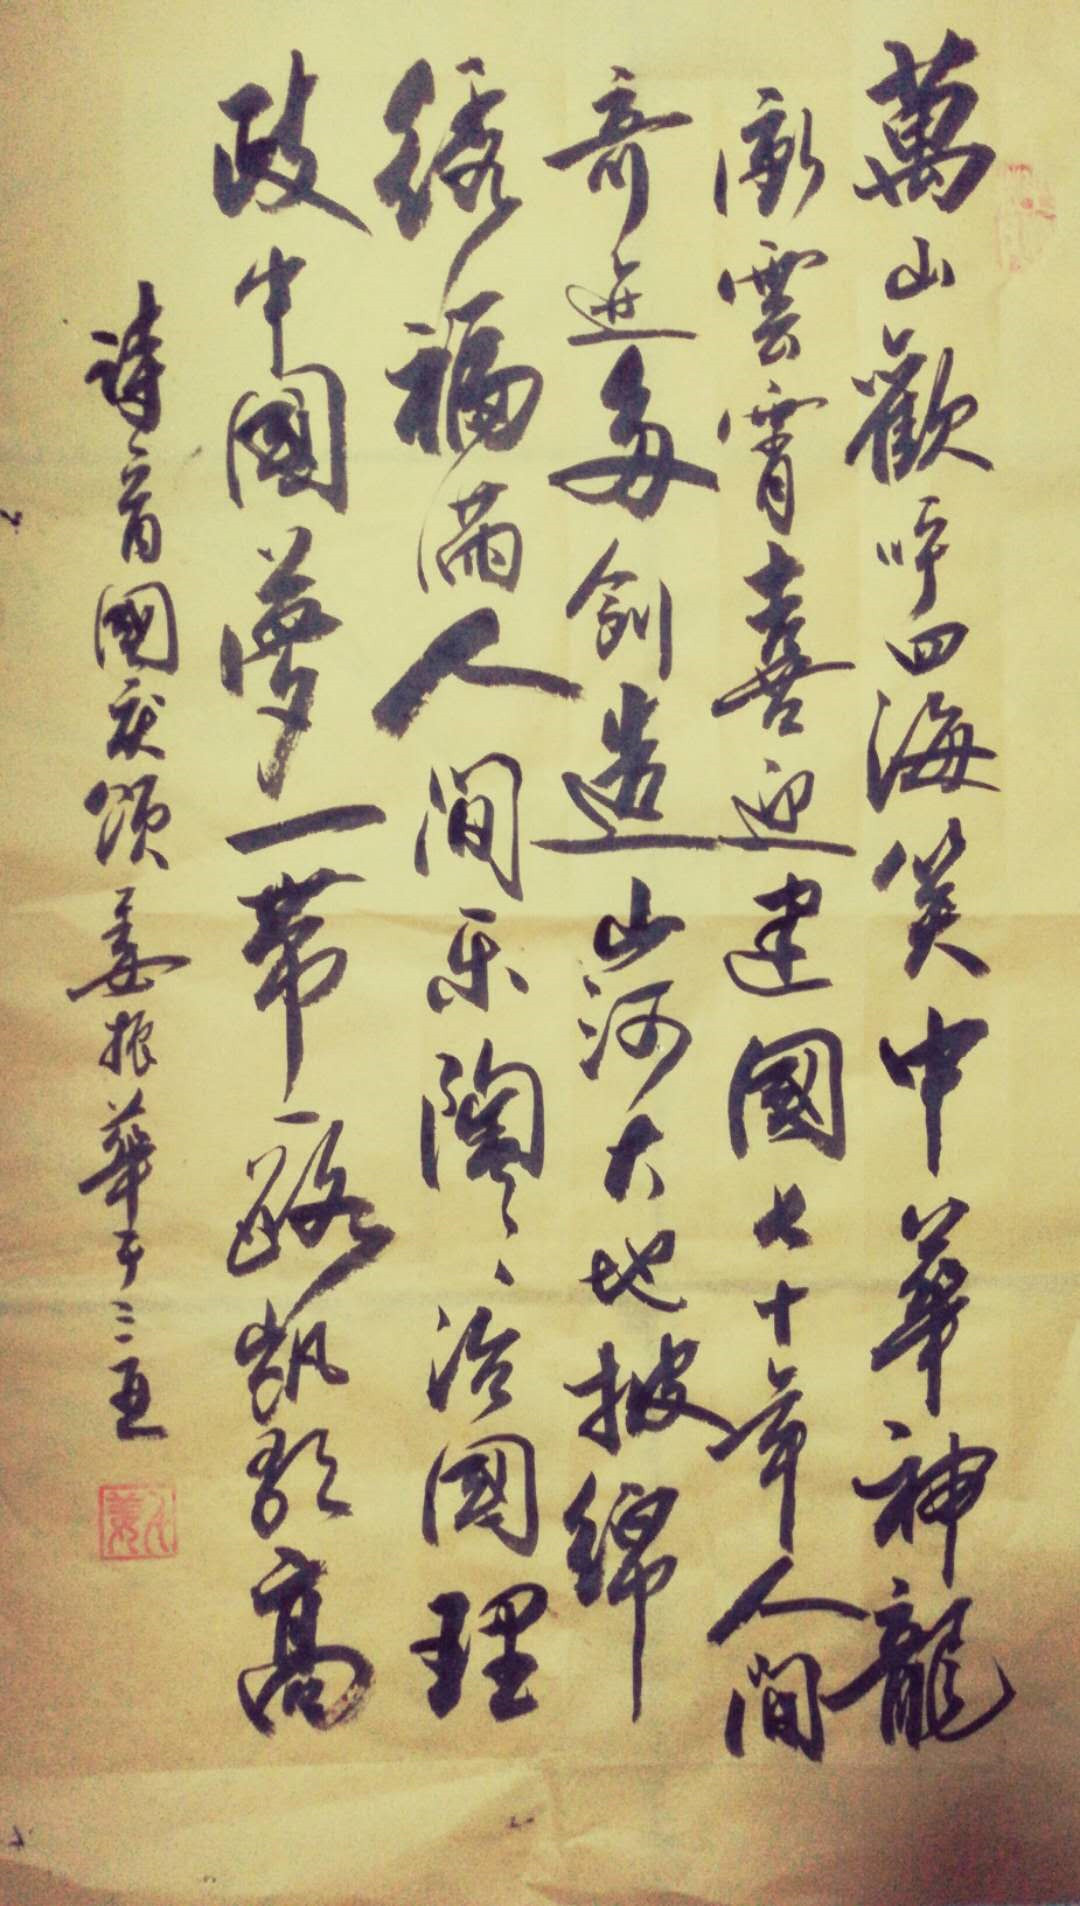 萬山歡呼四海笑中華神龍
衝雲霄喜迎建國七十年人間
奇迹多創造山河大地披錦
繡福滿人間樂陶々治國理
政中國夢一帶一路凱歌高
詩一首國慶頌姜振華于